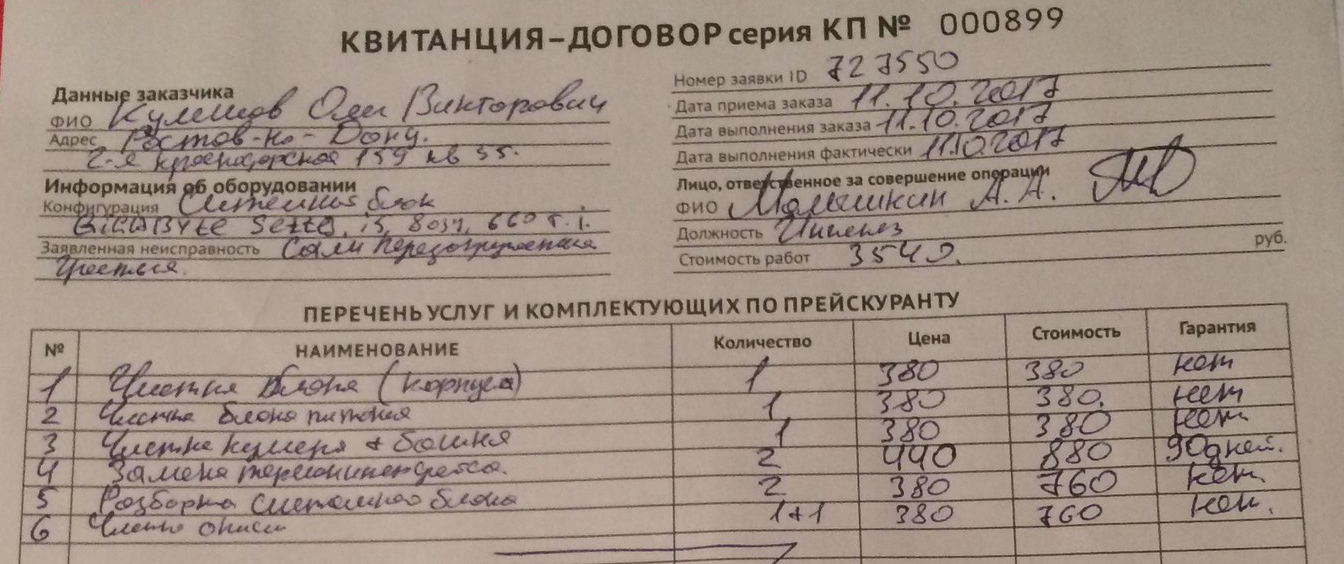 КВИТАНЦИЯ–ДОГОВОР серия КП № 000899
Данные заказчика
ФИО Кулешов Олег Викторович
Адрес Ростов-на-Дону.
2-я Краснодарская 159 кв 55.
Информация об оборудовании
Конфигурация Системный блок
GIGABYTE i5, 8озу, 660
Заявленная неисправность Сам перезагружается
Чистка.
Номер заявки ID 727550
Дата приема заказа 11.10.2017
Дата выполнения заказа 11.10.2017
Дата выполнения фактически 11.10.2017
Лицо, ответственное за совершение операции
ФИО Малышкин А.А.
Должность Инженер
Стоимость работ 3540. руб.
ПЕРЕЧЕНЬ УСЛУГ И КОМПЛЕКТУЮЩИХ ПО ПРЕЙСКУРАНТУ
№ НАИМЕНОВАНИЕ Количество Цена Стоимость Гарантия
1 Чистка блока (корпуса) 1 380 380 нет
2 Чистка блока питания 1 380 380. нет
3 Чистка кулера + башня 1 380 380 нет
4 Замена термоинтерфейса. 2 440 880 90 дней.
5 Разборка системного блока 2 380 760 нет
6 Чистка 1+1 380 760 нет.